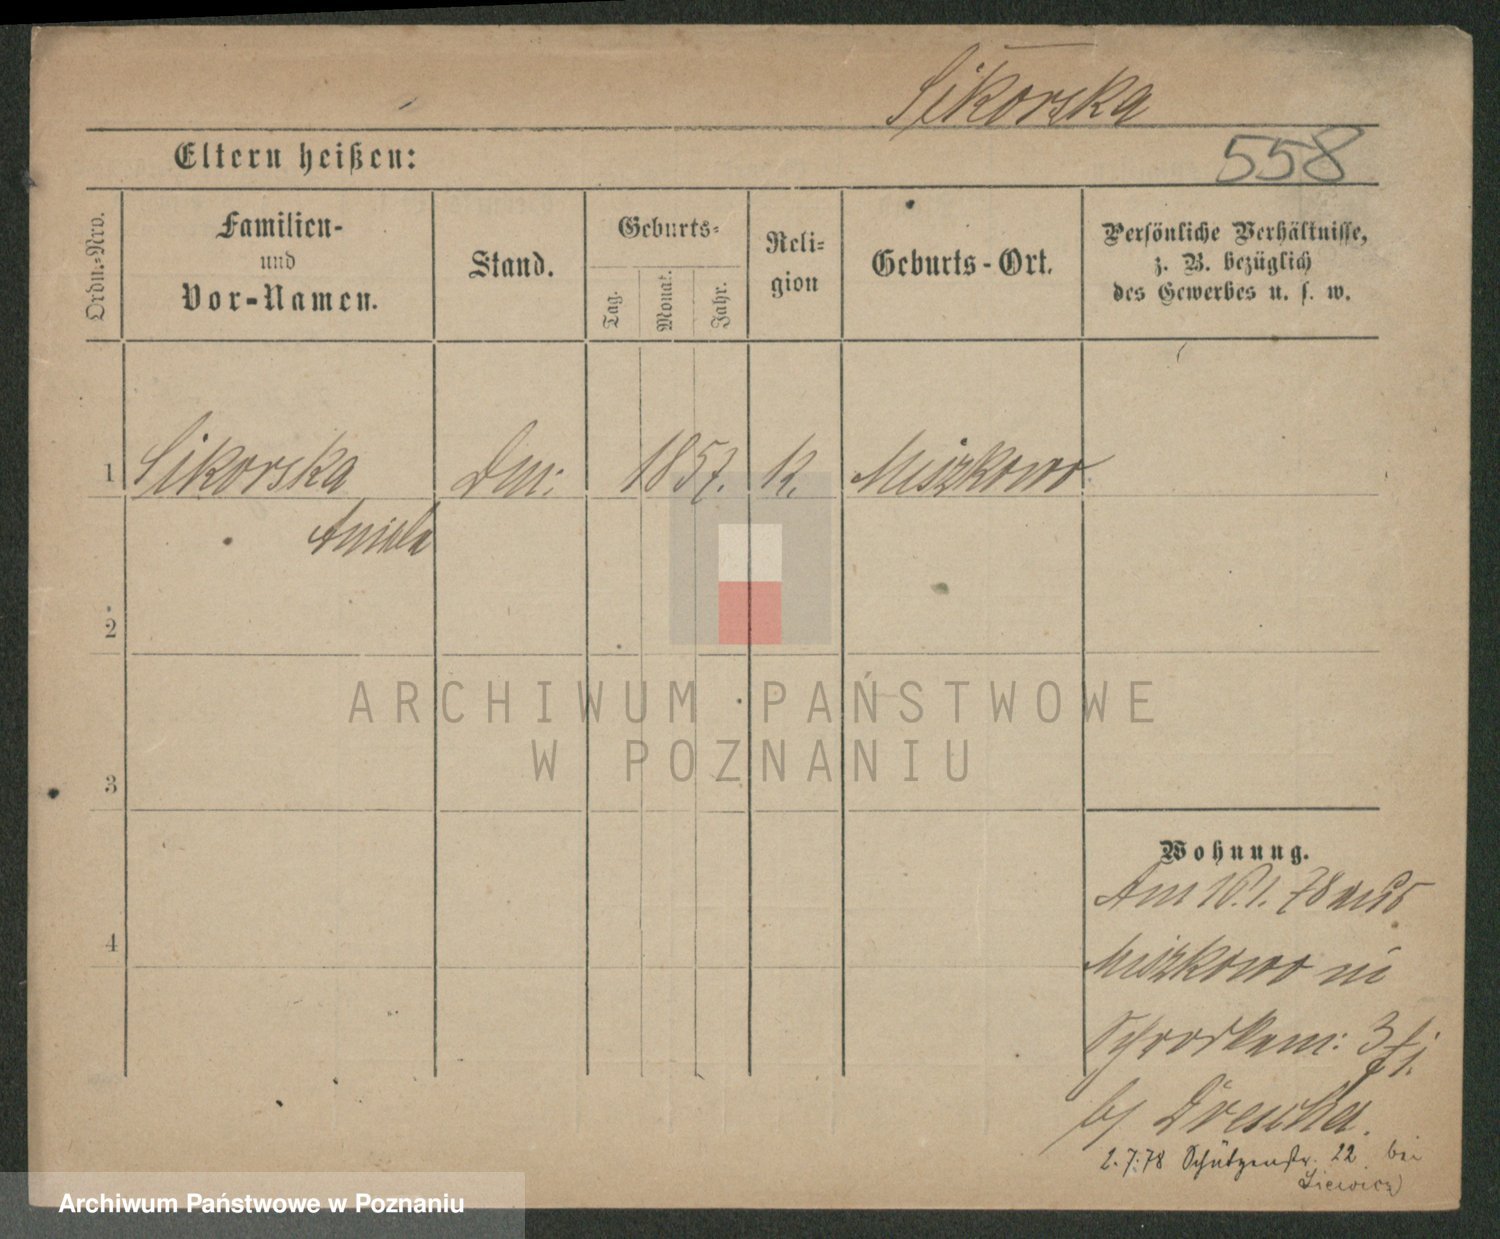 Sikorska
Eltern heißen:
558
Ordn.-Nro.
Familien-
und
Vor-Namen.
Stand.
Geburts-
Tag.
Monat.
Jahr.
Reli-
gion
Geburts-Ort.
Persönliche Verhältnisse,
z. B. bezüglich
des Gewerbes u. s. w.
1 Sikorska 1857. K.
Aniela
2
3
4
Wohnung.
Am 78 aus
in
3
2.7.78 Schützenstr. 22 bei
ARCHIWUM PAŃSTWOWE
W POZNANIU
Archiwum Państwowe w Poznaniu